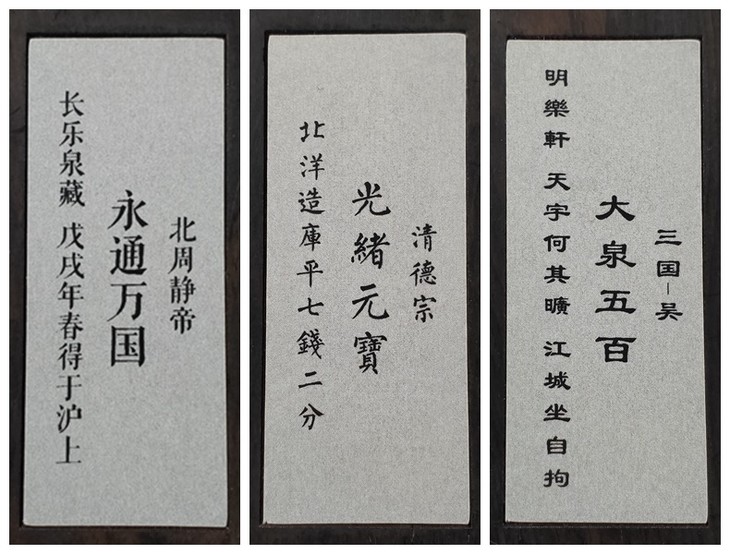 北周静帝
永通万国
长乐泉藏 戊戌年春得于沪上
清德宗
光緒元寶
北洋造庫平七錢二分
三国-吴
大泉五百
明樂軒 天宇何其曠 江城坐自拘